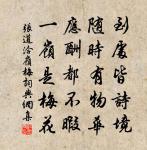 到處皆詩境
隨時有物華
應酬都不暇
一嶺是梅花
張道洽嶺梅詞典網集